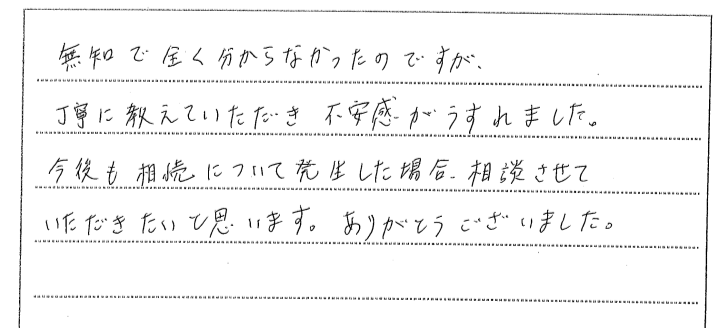 無知で全く分からなかったのですが、
丁寧に教えていただき 不安感がうすれました。
今後も相続について発生した場合、相談させて
いただきたいと思います。ありがとうございました。